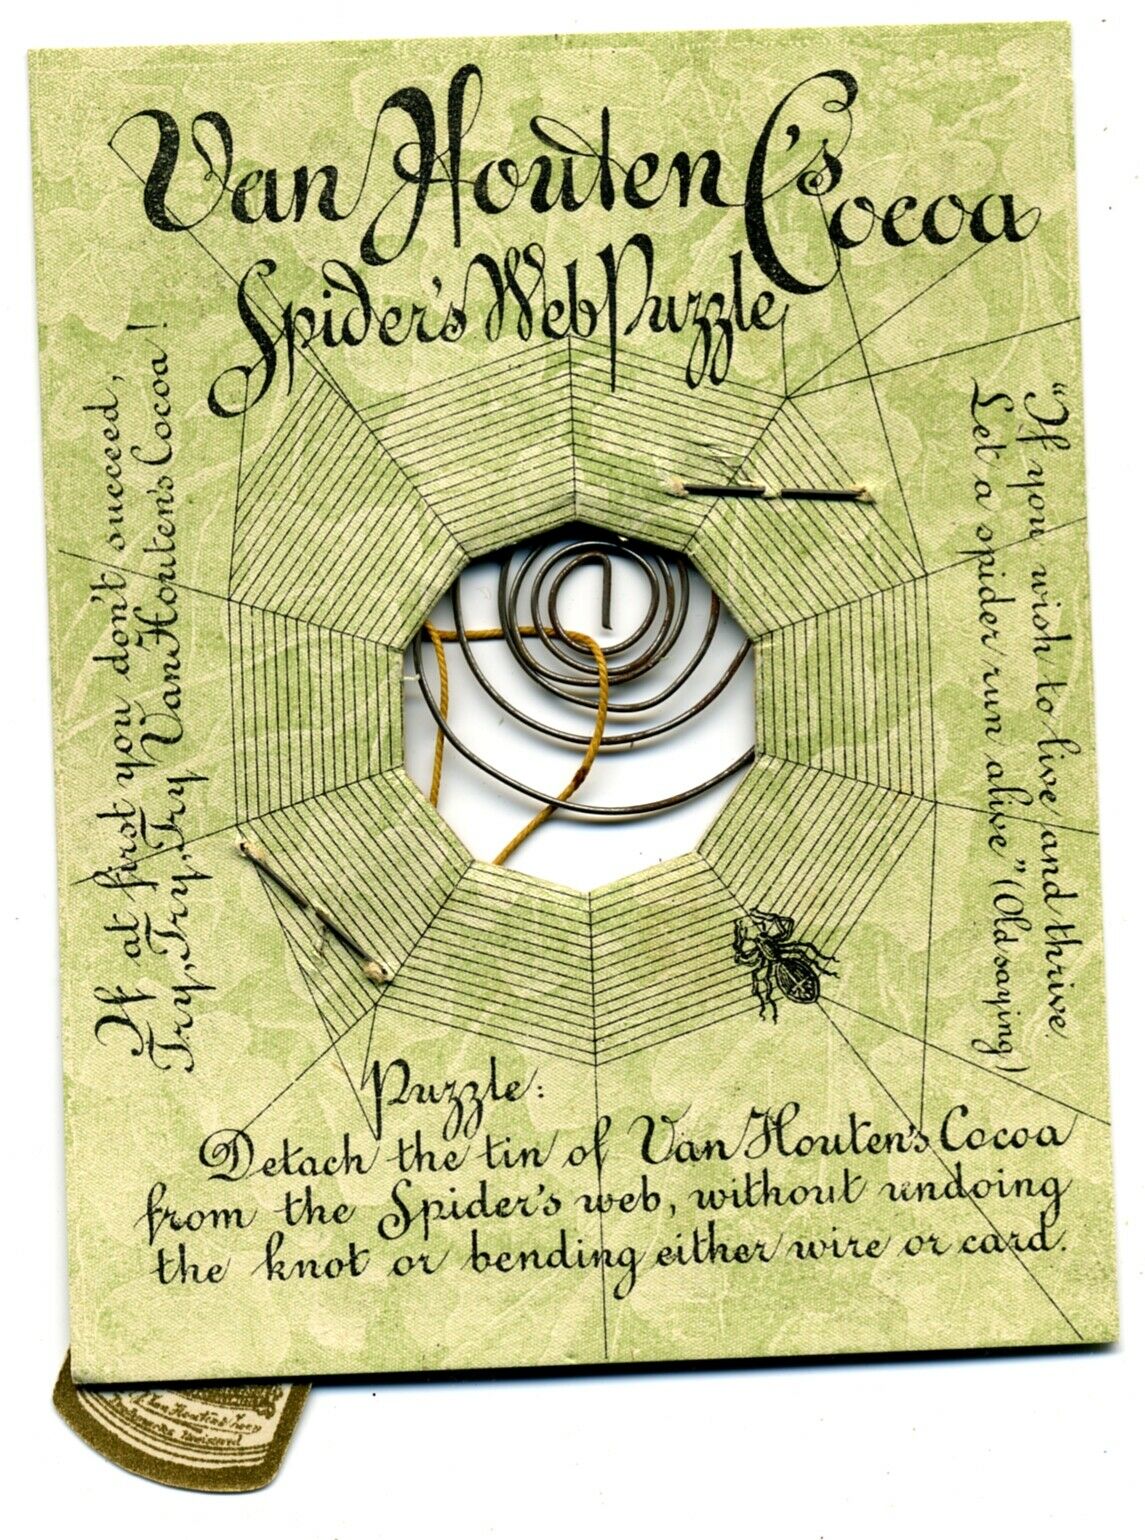 Van Houten's Cocoa
Spider's Web Puzzle
If at first you don't succeed,
Try, Try, Try Van Houten's Cocoa!
"If you wish to live and thrive
Let a spider run alive" (Old saying)
Puzzle:
Detach the tin of Van Houten's Cocoa
from the Spider's web, without undoing
the knot or bending either wire or card.
Van Houten & Zoon
Registered